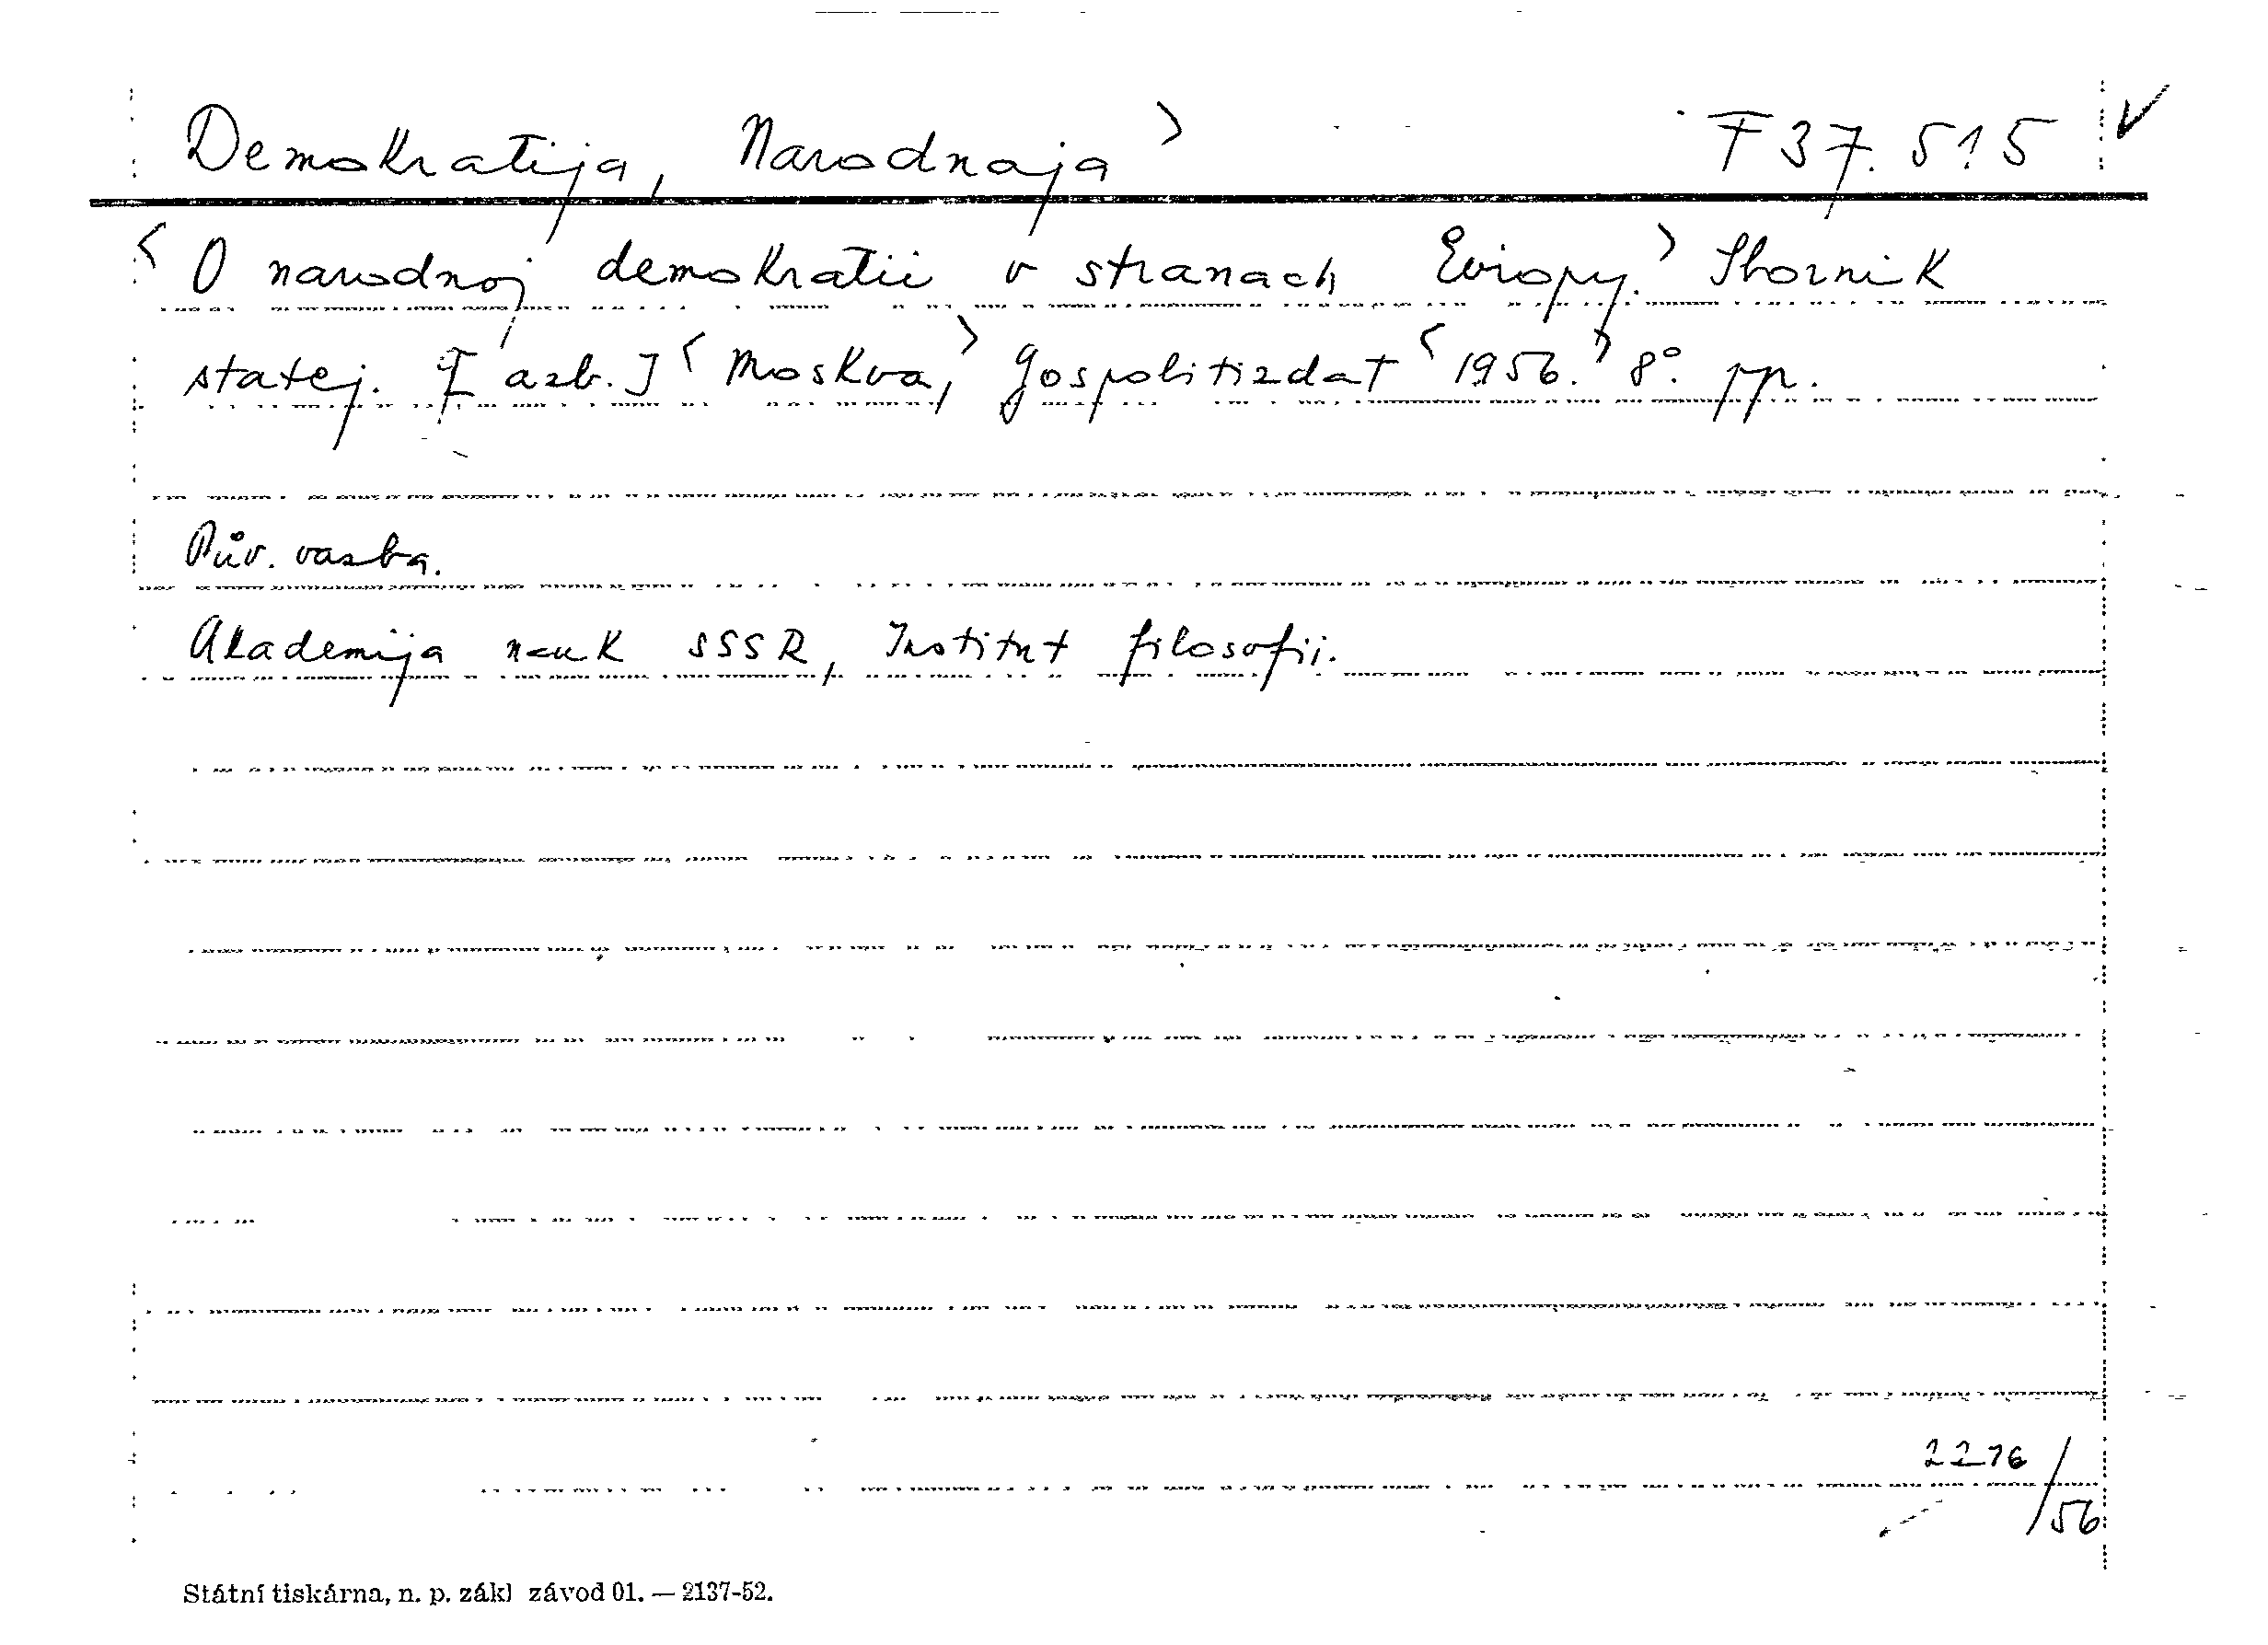 Demokratija, Narodnaja> F 37.515 ✓
<O narodnoj demokratii v stranach Evropy.> Sbornik
statej. [azb.] <Moskva,> Gospolitizdat <1956.> 8°. pp.
Pův. vazba.
Akademija nauk SSSR, Institut filosofii.
2276/56
Státní tiskárna, n. p. zákl závod 01. — 2137-52.